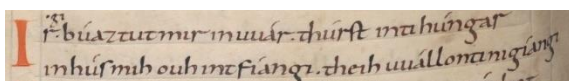 Ir gi búaztut mir inuuár. thúrst intihúngar
inhús mih ouh intfiangi. theih uuállontinigiangi